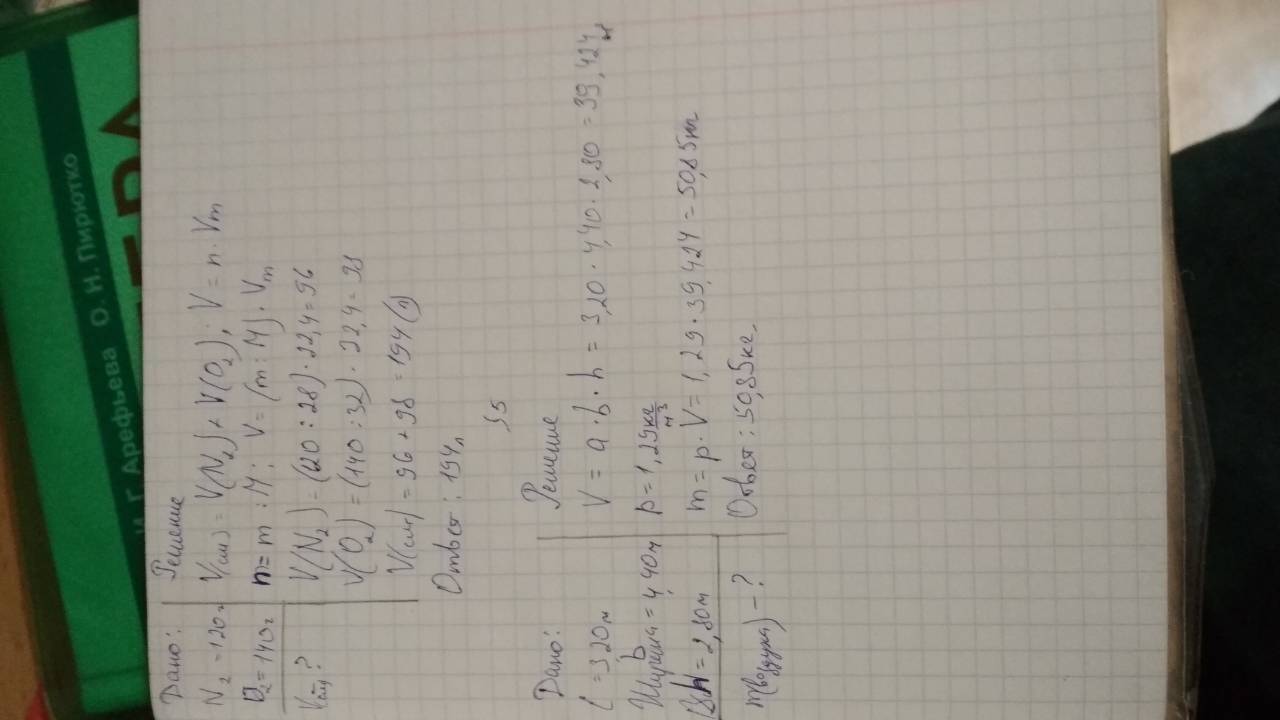 И. Г. Арефьева О. Н. Пирютко
Дано:
N₂ = 120г
O₂ = 140г
Vсм?
Решение
V(см) = V(N₂) + V(O₂); V = n · Vm
n = m : M; V = (m : M) · Vm
V(N₂) = (120 : 28) · 22,4 = 96
V(O₂) = (140 : 32) · 22,4 = 98
V(см) = 96 + 98 = 194 (л)
Ответ: 194л
§5
Дано:
= 3,20м
b
Ширина = 4,40м
H = 2,80м
m(воздуха) - ?
Решение
V = a · b · h = 3,20 · 4,40 · 2,80 = 39,424
p = 1,29 кг/м³
m = p · V = 1,29 · 39,424 = 50,85кг
Ответ: 50,85кг